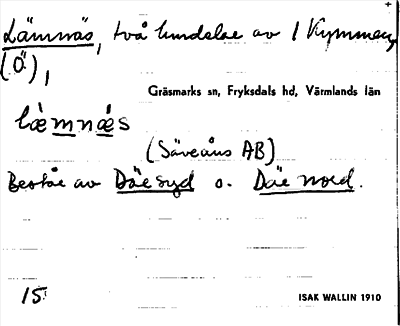 Lämnäs, två hundelar av 1 Kymmen,
(Ö.),
Gräsmarks sn, Fryksdals hd, Värmlands län
læ̀mnǽs
(Säveåns AB)
Består av Däe syd o. Däe nord.
15.
ISAK WALLIN 1910